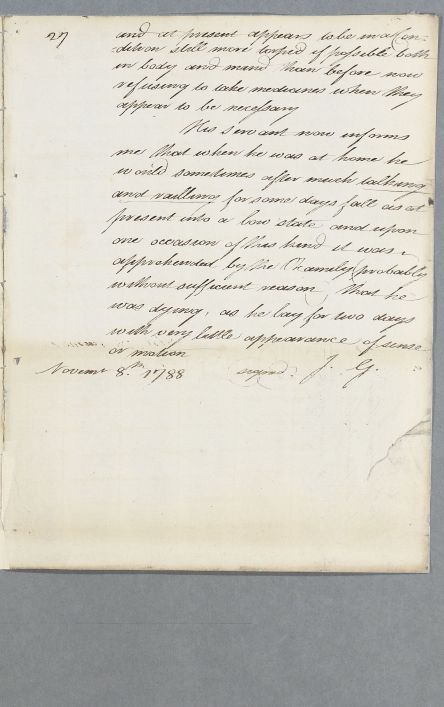 27
and at present appears to be in a Con-
=dition still more torpid if possible both
in body and mind than before now
refusing to take medicines when they
appear to be necessary
His servant now informs
me that when he was at home he
would sometimes after much talking
and railling for some days fall as at
present into a low state, and upon
one occasion of this kind it was
apprehended by the Family (probably
without sufficient reason) that he
was dying, as he lay for two days
with very little appearance of sense
or motion
Novemr 8.th 1788 signed. J. G.